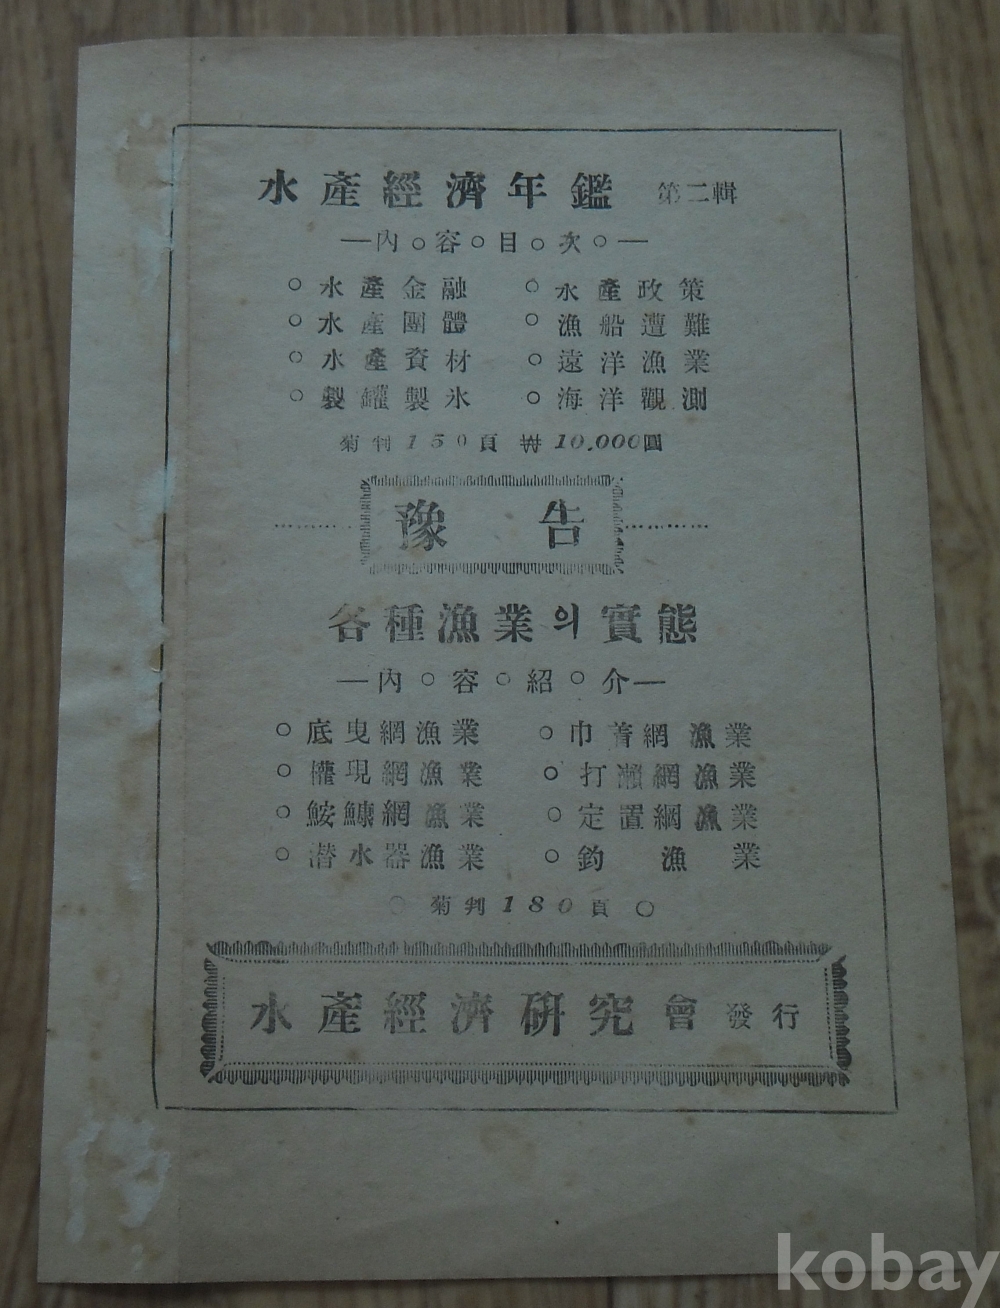 水產經濟年鑑 第二輯
—內○容○目○次○—
○水產金融 ○水產政策
○水產團體 ○漁船遭難
○水產資材 ○遠洋漁業
○製罐製氷 ○海洋觀測
菊判150頁 ₩10,000圓
豫告
各種漁業의實態
—內○容○紹○介—
○底曳網漁業 ○巾着網漁業
○權現網漁業 ○打瀨網漁業
○鮟鱇網漁業 ○定置網漁業
○潜水器漁業 ○釣漁業
○菊判180頁○
水產經濟硏究會發行
kobay